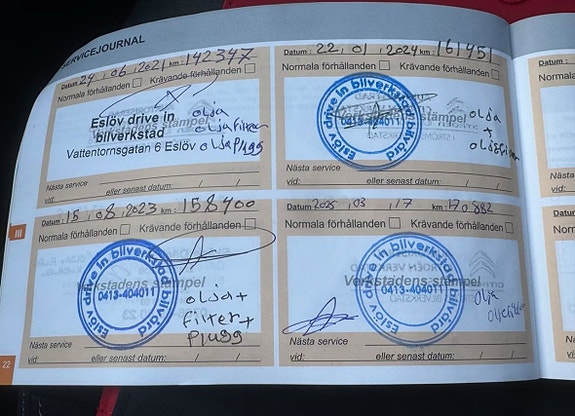 SERVICEJOURNAL
Datum: 24 , 06 , 2021 km: 142347
Normala förhållanden Krävande förhållanden
Eslöv drive in
bilverkstad
Vattentornsgatan 6 Eslöv
Verkstadens stämpel
olja
oljafilter
oljaplugg
Nästa service
vid: eller senast datum: / /
Datum: 22 , 01 , 2024 km: 161451
Normala förhållanden Krävande förhållanden
Eslöv drive in bilverkstad bilvård
0413-404011
Verkstadens stämpel
olja
+
oljefilter
Nästa service
vid: eller senast datum: / /
Datum: 15 , 08 , 2023 km: 158400
Normala förhållanden Krävande förhållanden
Eslöv drive in bilverkstad bilvård
0413-404011
Verkstadens stämpel
olja +
filter +
plugg
Nästa service
vid: eller senast datum: / /
Datum: 2025 , 03 , 17 km: 170882
Normala förhållanden Krävande förhållanden
Eslöv drive in bilverkstad bilvård
0413-404011
Verkstadens stämpel
olja
Nästa service
vid: eller senast datum: / /
III
22